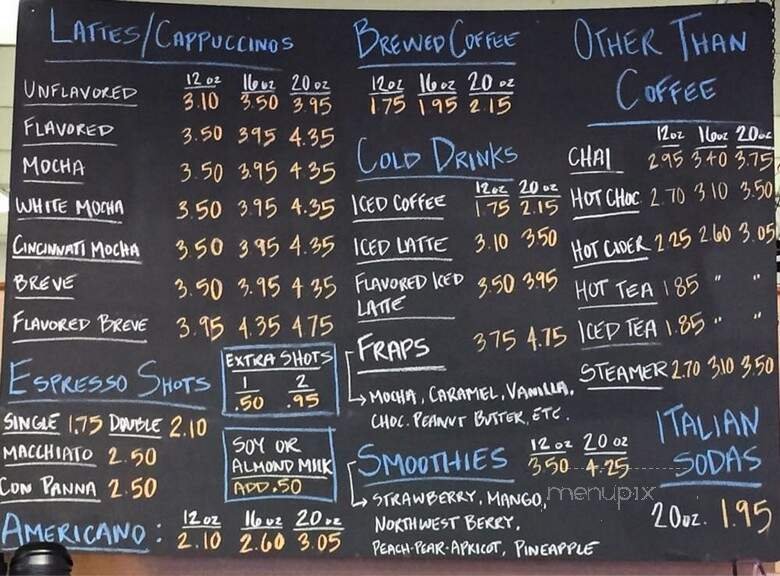 LATTES/CAPPUCCINOS
12 oz 16 oz 20 oz
UNFLAVORED 3.10 3.50 3.95
FLAVORED 3.50 3.95 4.35
MOCHA 3.50 3.95 4.35
WHITE MOCHA 3.50 3.95 4.35
CINCINNATI MOCHA 3.50 3.95 4.35
BREVE 3.50 3.95 4.35
FLAVORED BREVE 3.95 4.35 4.75
ESPRESSO SHOTS
SINGLE 1.75 DOUBLE 2.10
MACCHIATO 2.50
CON PANNA 2.50
EXTRA SHOTS
1 2
.50 .95
SOY OR
ALMOND MILK
ADD .50
12 oz 16 oz 20 oz
AMERICANO: 2.10 2.60 3.05
BREWED COFFEE
12oz 16oz 20 oz
1.75 1.95 2.15
COLD DRINKS
12oz 20 oz
ICED COFFEE 1.75 2.15
ICED LATTE 3.10 3.50
FLAVORED ICED 3.50 3.95
LATTE
FRAPS 3.75 4.75
MOCHA, CARAMEL, VANILLA,
CHOC. PEANUT BUTTER, ETC.
12 oz 20 oz
SMOOTHIES 3.50 4.25
STRAWBERRY, MANGO,
NORTHWEST BERRY,
PEACH-PEAR-APRICOT, PINEAPPLE
OTHER THAN
COFFEE
12oz 16oz 20oz
CHAI 2.95 3.40 3.75
HOT CHOC 2.70 3.10 3.50
HOT CIDER 2.25 2.60 3.05
HOT TEA 1.85 " "
ICED TEA 1.85 " "
STEAMER 2.70 3.10 3.50
ITALIAN
SODAS
20oz. 1.95
menupix